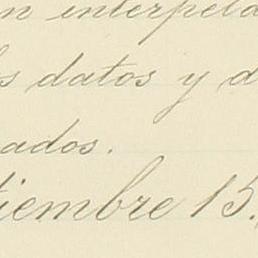 n interpela
s datos y d
ados.
tiembre 15.